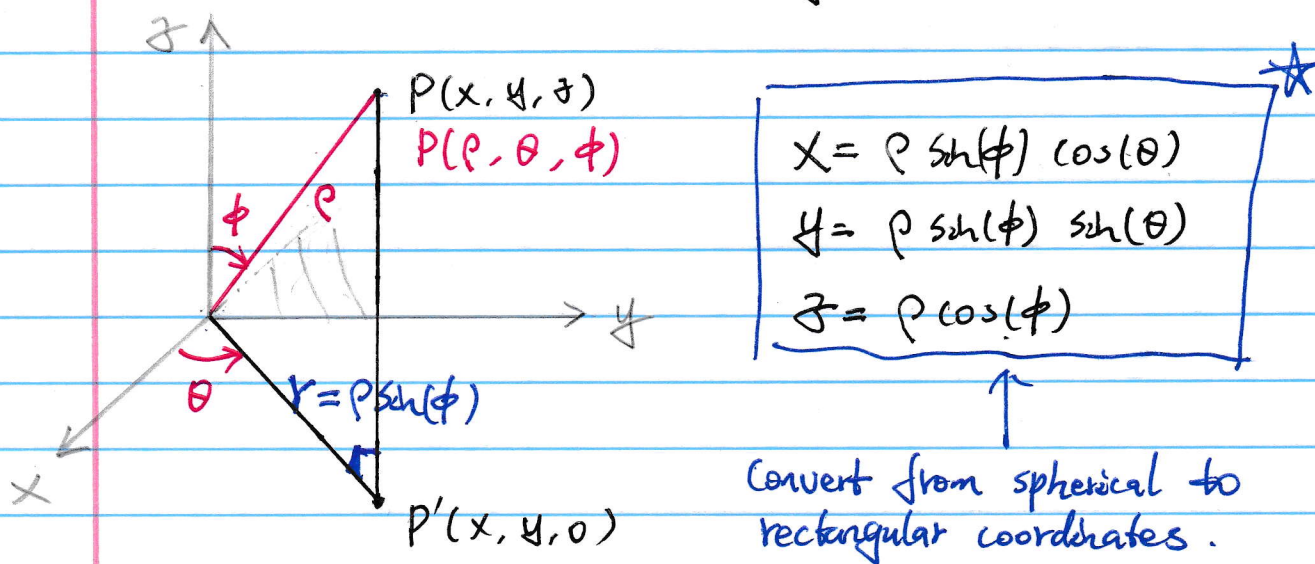 z
P(x, y, z)
P(ρ, θ, φ)
φ
ρ
y
θ
r = ρ sin(φ)
x
P'(x, y, 0)
x = ρ sin(φ) cos(θ)
y = ρ sin(φ) sin(θ)
z = ρ cos(φ)
Convert from spherical to
rectangular coordinates.